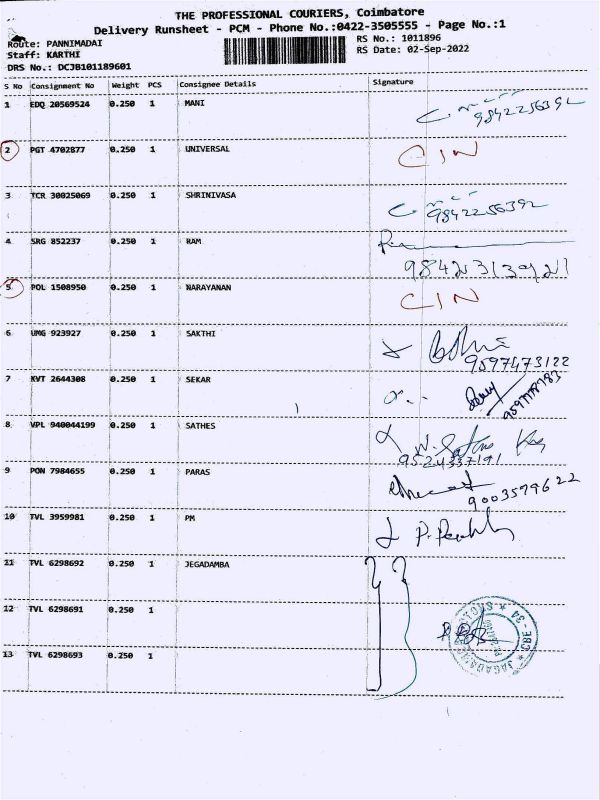 THE PROFESSIONAL COURIERS, Coimbatore
Delivery Runsheet - PCM - Phone No.:0422-3505555 - Page No.:1
Route: PANNIMADAI
RS No.: 1011896
Staff: KARTHI
RS Date: 02-Sep-2022
DRS No.: DCJB101189601
S No Consignment No Weight PCS Consignee Details Signature
1 EDQ 20569524 0.250 1 MANI
9842256392
2 PGT 4702877 0.250 1 UNIVERSAL CIN
3 TCR 30025069 0.250 1 SHRINIVASA
9842256392
4 SRG 852237 0.250 1 RAM
5 POL 1508950 0.250 1 NARAYANAN CIN
6 UMG 923927 0.250 1 SAKTHI
9597473122
7 KVT 2644308 0.250 1 SEKAR
8 VPL 940044199 0.250 1 SATHES
9524337191
9 PON 7984655 0.250 1 PARAS
9003579622
10 TVL 3959981 0.250 1 PM
11 TVL 6298692 0.250 1 JEGADAMBA
12 TVL 6298691 0.250 1
13 TVL 6298693 0.250 1